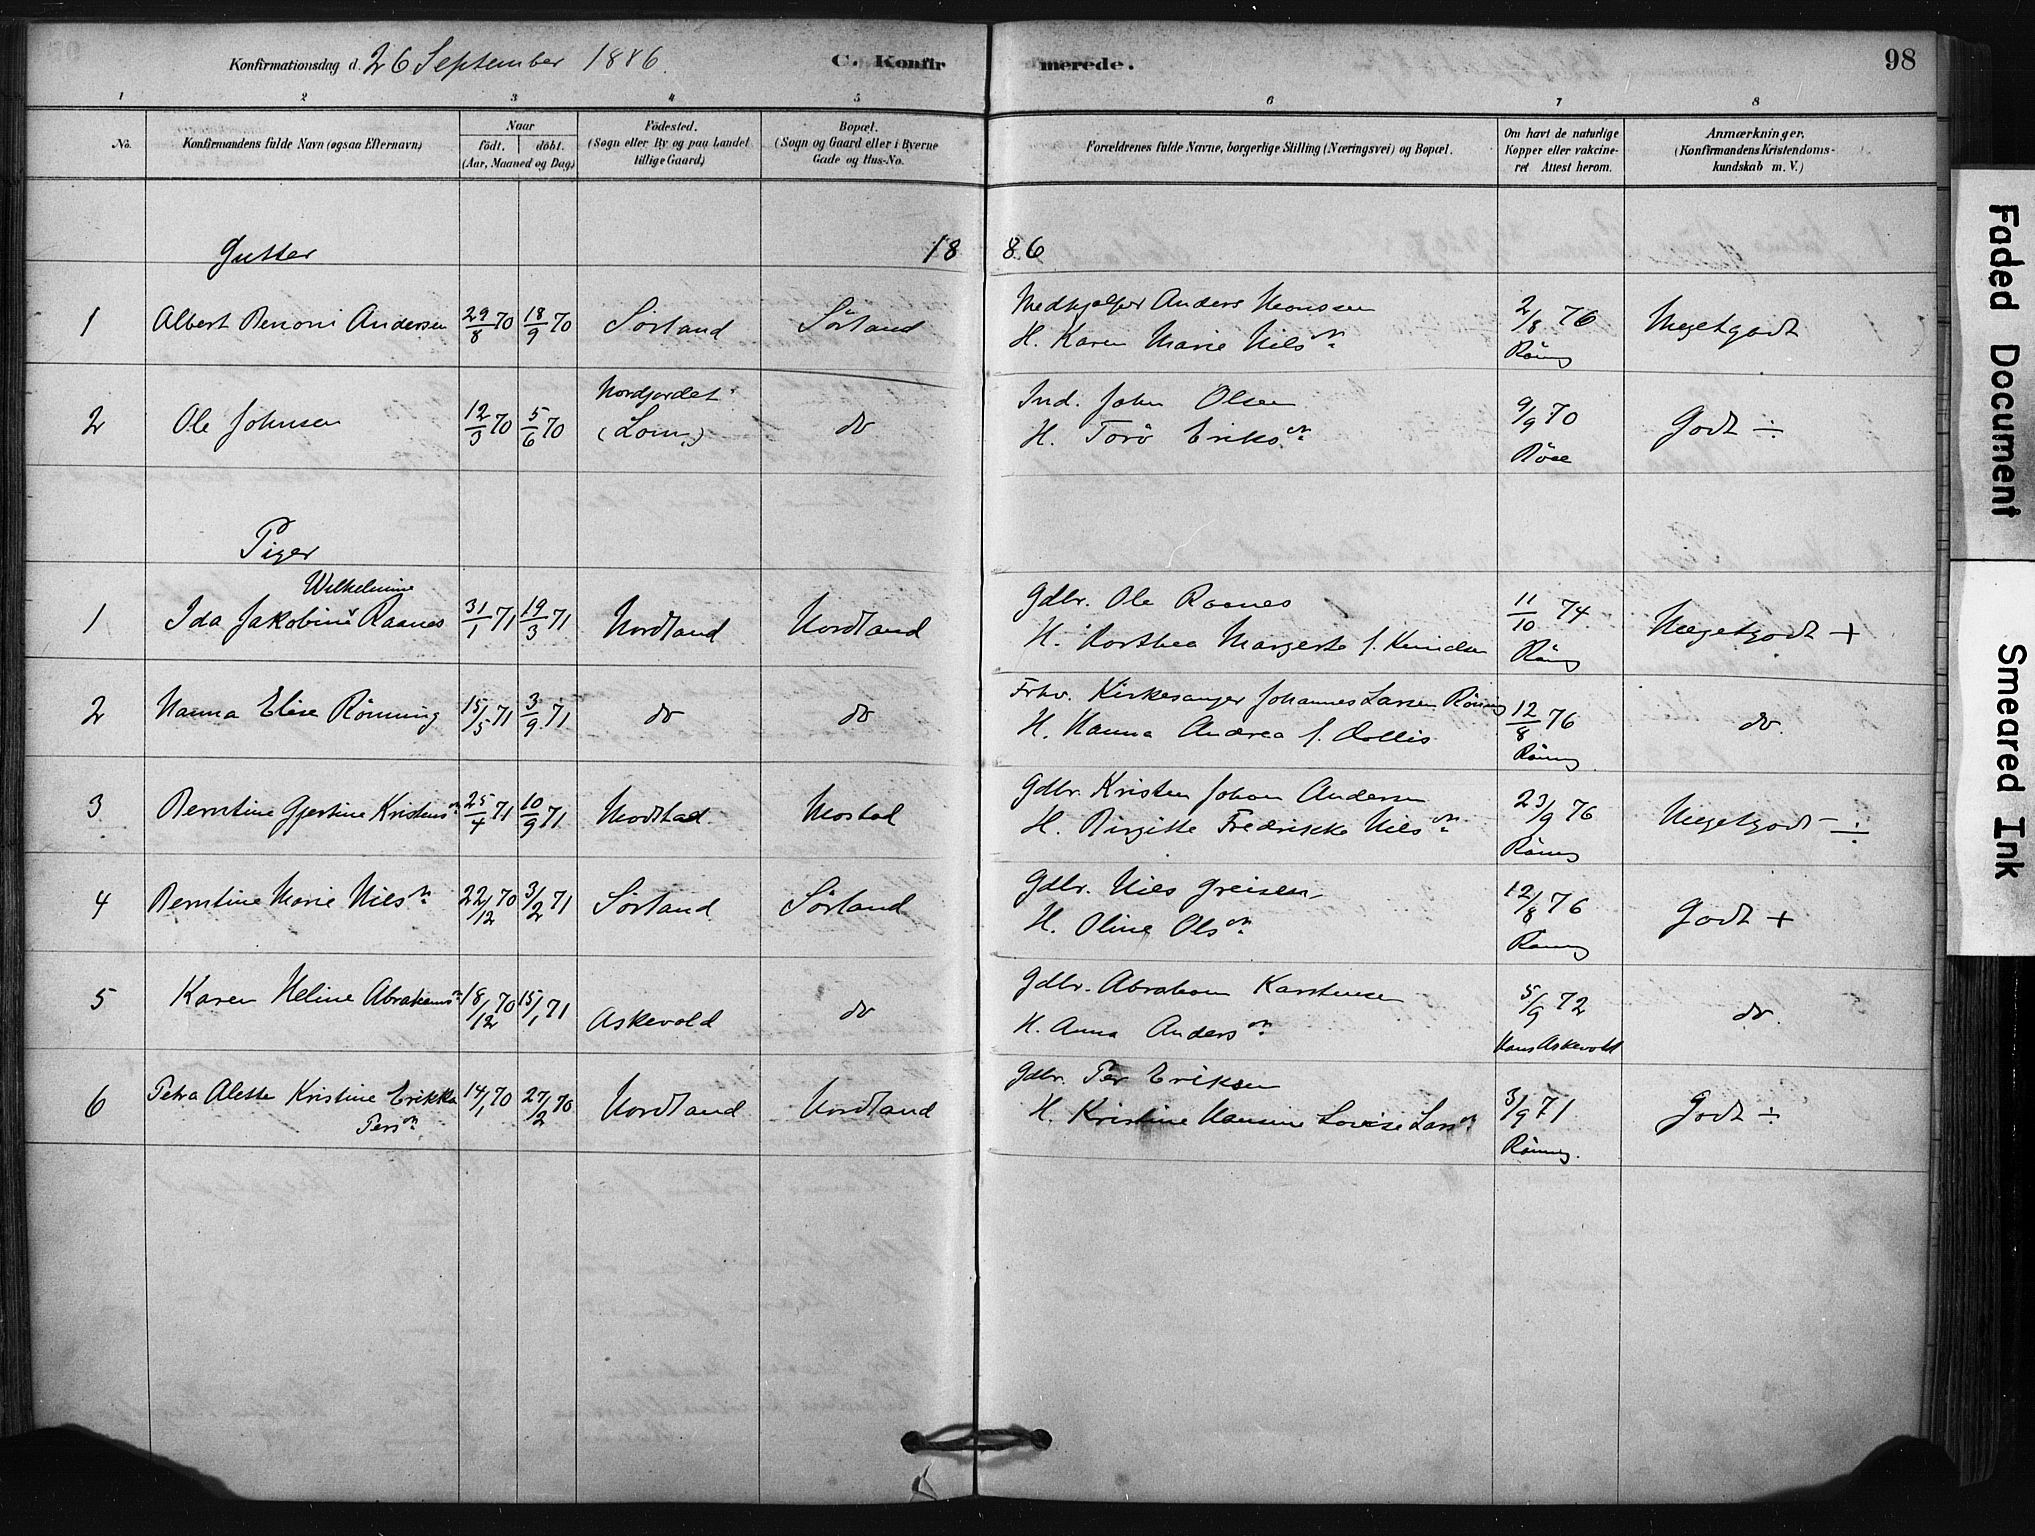 Konfirmationsdag d. 26 September 1886.
C. Konfir merede.
98
1 2 3 4 5 6 7 8
No.
Konfirmandens fulde Navn (ogsaa Efternavn)
Naar
födt. döbt.
(Aar, Maaned og Dag)
Födested.
(Sogn eller By og paa Landet
tillige Gaard)
Bopæl.
(Sogn og Gaard eller i Byerne
Gade og Hus-No.
Forældrenes fulde Navne, borgerlige Stilling (Næringsvei) og Bopæl.
Om havt de naturlige
Kopper eller vakcine-
ret Attest herom.
Anmærkninger.
(Konfirmandens Kristendoms-
kundskab m. V.)
Gutter 18 86
1 Albert Benoni Andersen 29/8 70 18/9 70 Sörland Sörland
Medhjælper Anders Monssen
H. Karen Marie Nilsn
2/8 76
Röning
Megetgodt
2 Ole Johnsen 12/3 70 5/6 70
Nordjordet
(Lom)
do
Ind. John Olsen
H. Torö Eriksn
9/9 70
Godt ÷
Piger
Wilhelmine
1 Ida Jakobine Raanes 31/1 71 19/3 71 Nordland Nordland
Gdbr. Ole Raanes
H. Dorthea Margrete f. Knudsen
11/10 74.
Röning
Megetgodt +
2 Hanna Elise Rönning 15/5 71 3/9 71 do do
Frhv. Kirkesanger Johannes Larsen Röning
H. Hanna Andrea f. Dollis
12/8 76
Röning
do.
3 Berntine Gjertine Kristensn 25/4 71 10/9 71 Mostad Mostad
Gdbr. Kristen Johan Andersen
H. Birgitte Fredrikke Nilsn
23/9 76
Röning
Megetgodt ÷
4 Berntine Marie Nilsn 22/12 70 3/2 71 Sörland Sörland
Gdbr. Nils Greisen
H. Oline Olsn
12/8 76
Röning
Godt +
5 Karen Heline Abrahamsn 18/12 70 15/1 71 Askevold do
Gdbr. Abraham Karstensen
H. Anna Andersn
5/9 72
Hans Askevold
do.
6 Petra Alette Kristine Erikka 14/1 70 27/2 70 Nordland Nordland
Persn
Gdbr. Per Eriksen
H. Kristine Hansine Lovise Larsn
3/9 71
Rönning.
Godt ÷
Faded Document
Smeared Ink